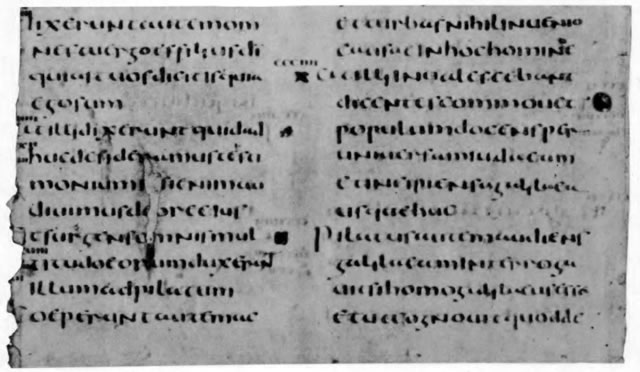 dixerunt autem om
nes tu ergo es filius di
qui ait uos dicitis quia
ego sum
at illi dixerunt quid ad
huc desideramus testi
monium ipsi enim au
diuimus de ore eius
et surgens omnis mul
titudo eorum duxerunt
illum ad pilatum
coeperunt autem ac
et turbas nihil inuenio
causae in hoc homine
at illi inualescebant
dicentes commouet
populum docens per
uniuersam iudaeam
et incipiens a galilaea
usque huc
Pilatus autem audiens
galilaeam interroga
uit si homo galilaeus esse
et ut cognouit quod de